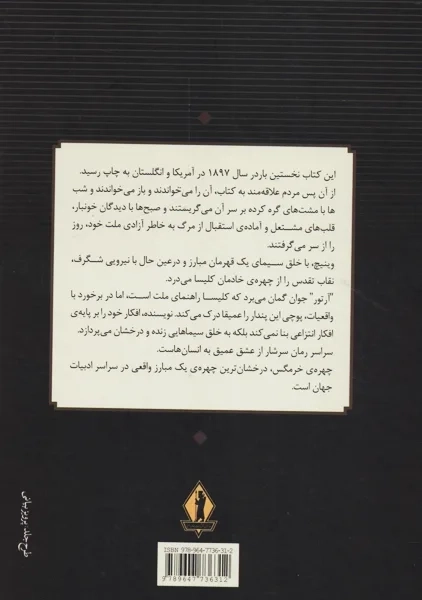 این کتاب نخستین باردر سال ۱۸۹۷ در آمریکا و انگلستان به چاپ رسید.
از آن پس مردم علاقه‌مند به کتاب، آن را می‌خواندند و باز می‌خواندند و شب
ها با مشت‌های گره کرده بر سر آن می‌گریستند و صبح‌ها با دیدگان خونبار،
قلب‌های مشتعل و آماده‌ی استقبال از مرگ به خاطر آزادی ملت خود، روز
را از سر می‌گرفتند.
وینیچ، با خلق سیمای یک قهرمان مبارز و درعین حال با نیرویی شگرف،
نقاب تقدس را از چهره‌ی خادمان کلیسا می‌درد.
"آرتور" جوان گمان می‌برد که کلیسا راهنمای ملت است، اما در برخورد با
واقعیات، پوچی این پندار را عمیقا درک می‌کند. نویسنده، افکار خود را بر پایه‌ی
افکار انتزاعی بنا نمی‌کند بلکه به خلق سیماهایی زنده و درخشان می‌پردازد.
سراسر رمان سرشار از عشق عمیق به انسان‌هاست.
چهره‌ی خرمگس، درخشان‌ترین چهره‌ی یک مبارز واقعی در سراسر ادبیات
جهان است.
طرح جلد: پرویز بیانی
ISBN 978-964-7736-31-2
9 789647 736312